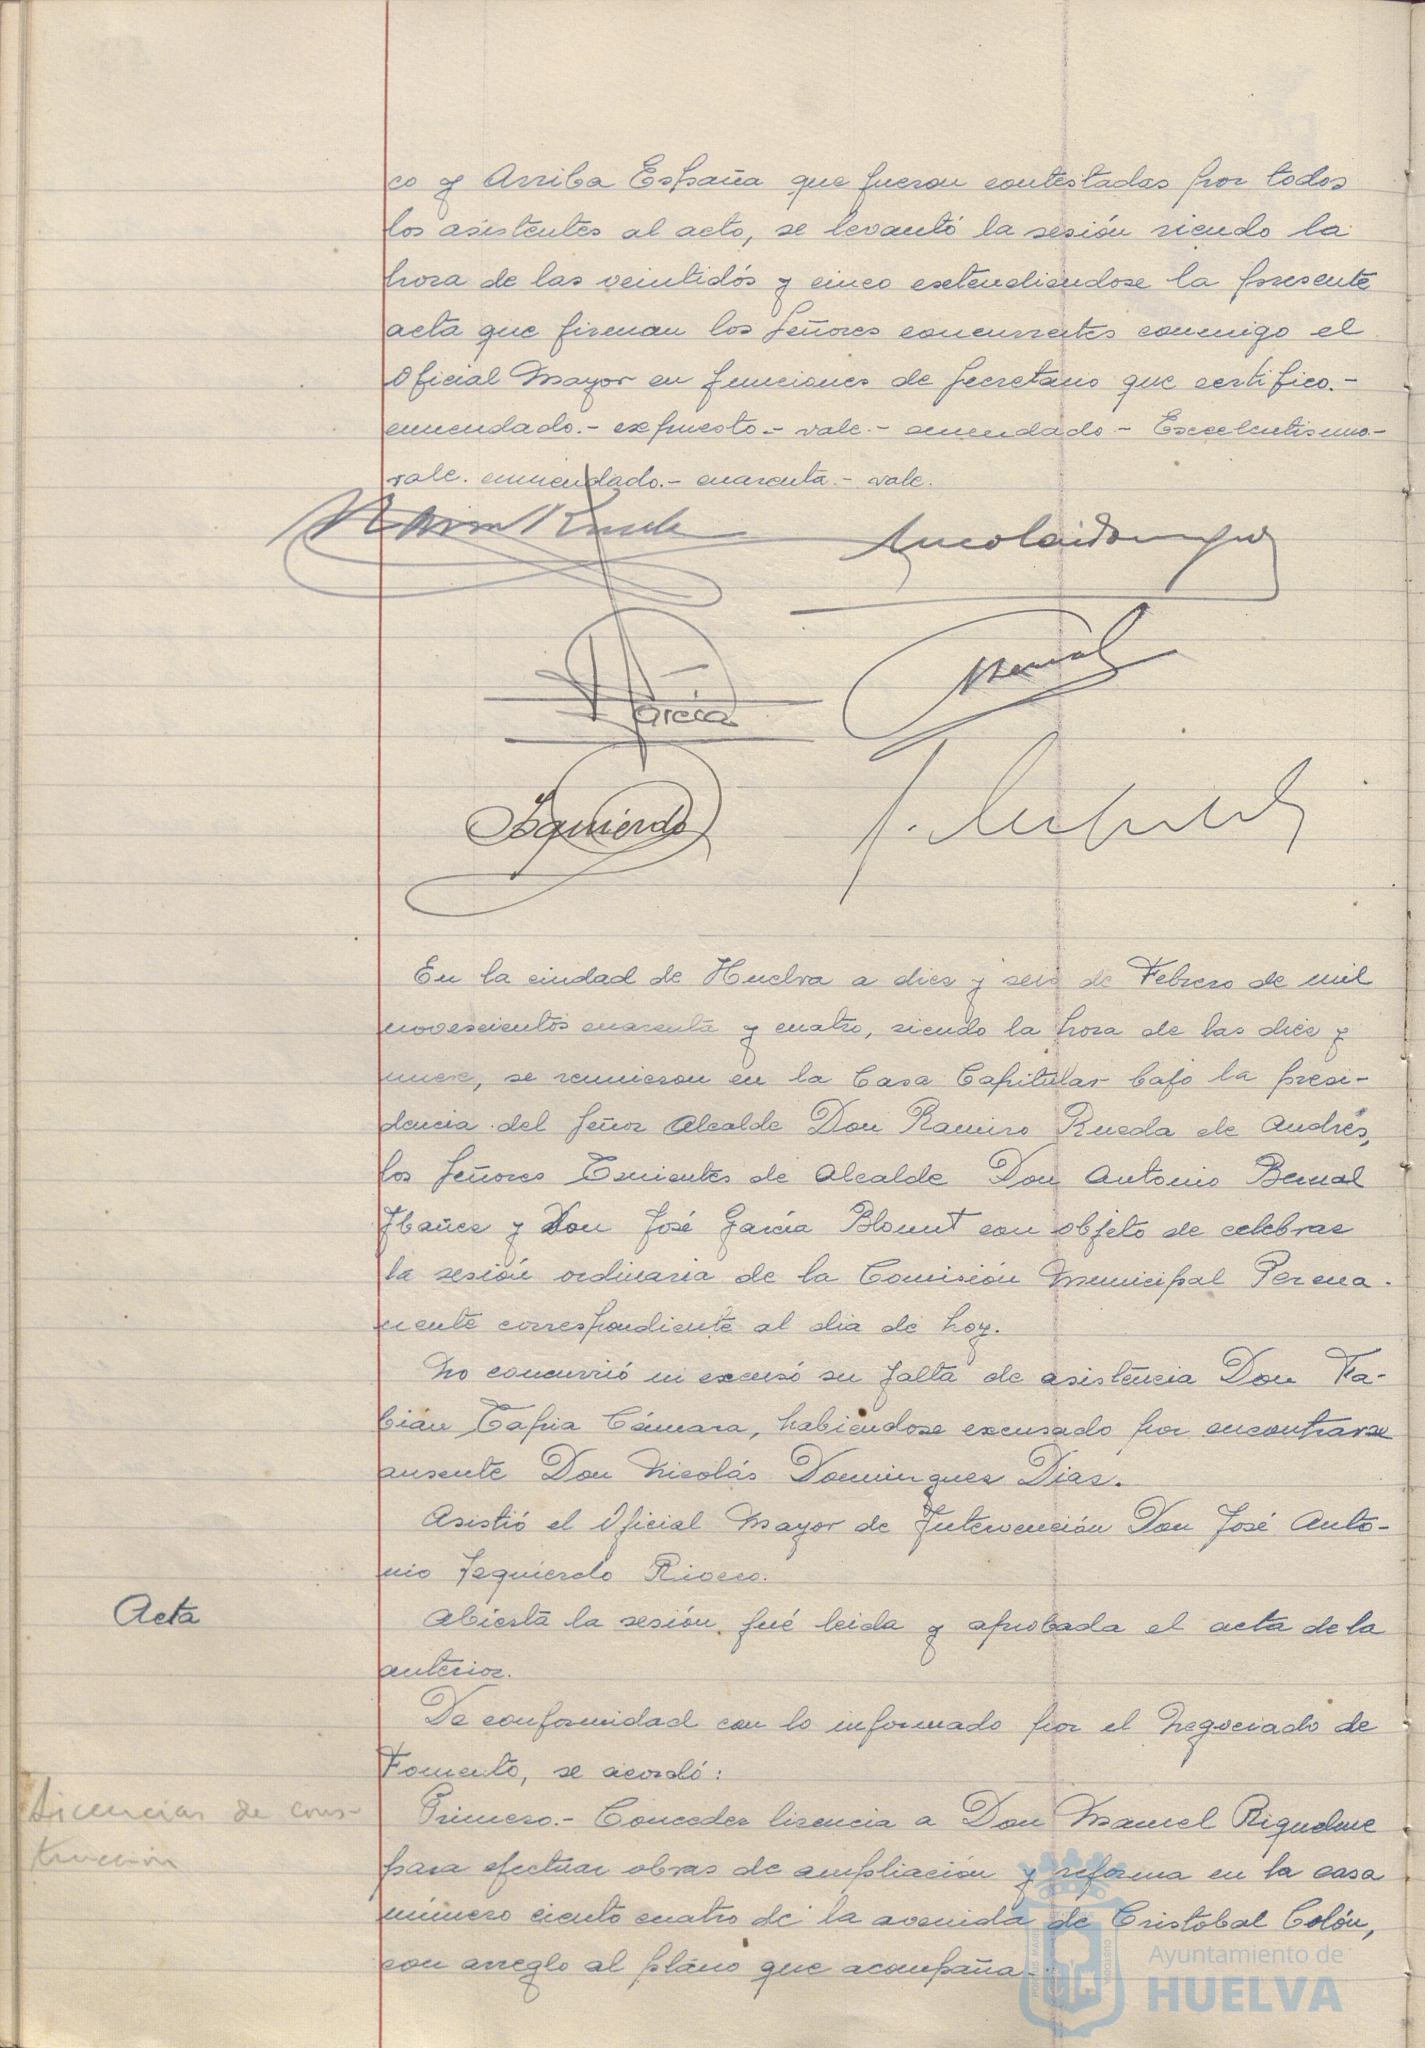 co y Arriba España que fueron contestadas por todos
los asistentes al acto, se levantó la sesión siendo la
hora de las veintidós y cinco extendiendose la presente
acta que firman los Señores concurrentes conmigo el
Oficial Mayor en funciones de Secretario que certifico.-
enmendado.- expuesto.- vale.- enmendado - Excelentisimo-
vale. enmendado.- cuarenta.- vale.
García
Bernal
Izquierdo
En la ciudad de Huelva a diez y seis de Febrero de mil
novescientos cuarenta y cuatro, siendo la hora de las diez y
nueve, se reunieron en la Casa Capitular bajo la presi-
dencia del Señor Alcalde Don Ramiro Rueda de Andrés,
los Señores Tenientes de Alcalde Don Antonio Bernal
Ibañez y Don José García Blount con objeto de celebrar
la sesión ordinaria de la Comisión Municipal Perma-
nente correspondiente al dia de hoy.
No concurrió ni excusó su falta de asistencia Don Fa-
bián Tapia Cámara, habiendose excusado por encontrarse
ausente Don Nicolás Dominguez Diaz.
Asistió el Oficial Mayor de Intervención Don José Anto-
nio Izquierdo Rivero.
Acta
Abierta la sesión, fué leida y aprobada el acta de la
anterior.
De conformidad con lo informado por el Negociado de
Fomento, se acordó:
Licencias de cons-
trucción
Primero.- Conceder licencia a Don Manuel Riquelme
para efectuar obras de ampliación y reforma en la casa
número ciento cuatro de la avenida de Cristobal Colón,
con arreglo al plano que acompaña.-
Ayuntamiento de
HUELVA